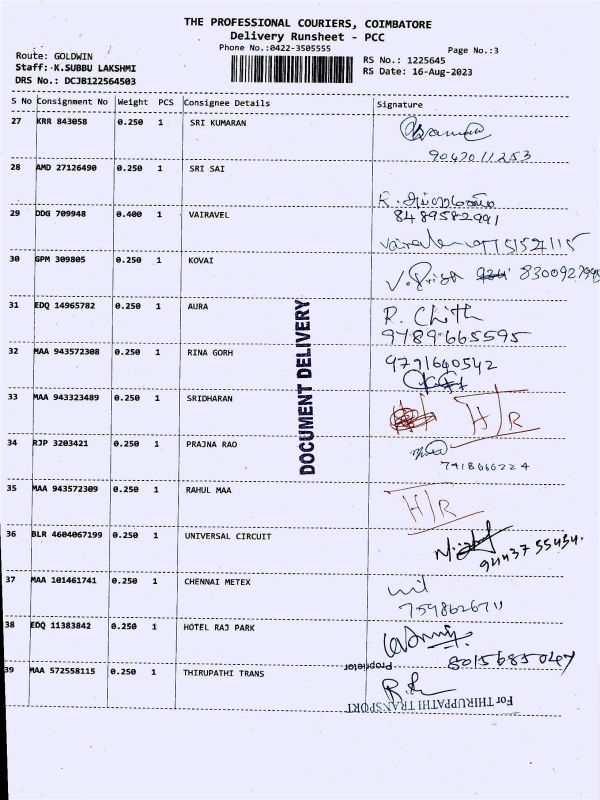 THE PROFESSIONAL COURIERS, COIMBATORE
Delivery Runsheet - PCC
Phone No.:0422-3505555
Page No.:3
Route: GOLDWIN
RS No.: 1225645
Staff: K.SUBBU LAKSHMI
RS Date: 16-Aug-2023
DRS No.: DCJB122564503
S No Consignment No Weight PCS Consignee Details Signature
27 KRR 843058 0.250 1 SRI KUMARAN
9042011253
28 AMD 27126490 0.250 1 SRI SAI
29 DDG 709948 0.400 1 VAIRAVEL 8489582991
30 GPM 309805 0.250 1 KOVAI
V. Priya
31 EDQ 14965782 0.250 1 AURA R. Chith
9789665595
32 MAA 943572308 0.250 1 RINA GORH 9791640542
33 MAA 943323489 0.250 1 SRIDHARAN H/R
34 RJP 3203421 0.250 1 PRAJNA RAO
7418666224
35 MAA 943572309 0.250 1 RAHUL MAA H/R
36 BLR 4604067199 0.250 1 UNIVERSAL CIRCUIT
37 MAA 101461741 0.250 1 CHENNAI METEX
7598626711
38 EDQ 11383842 0.250 1 HOTEL RAJ PARK
8015685047
Proprietor
39 MAA 572558115 0.250 1 THIRUPATHI TRANS
For THIRUPPATHI TRANSPORT
DOCUMENT DELIVERY